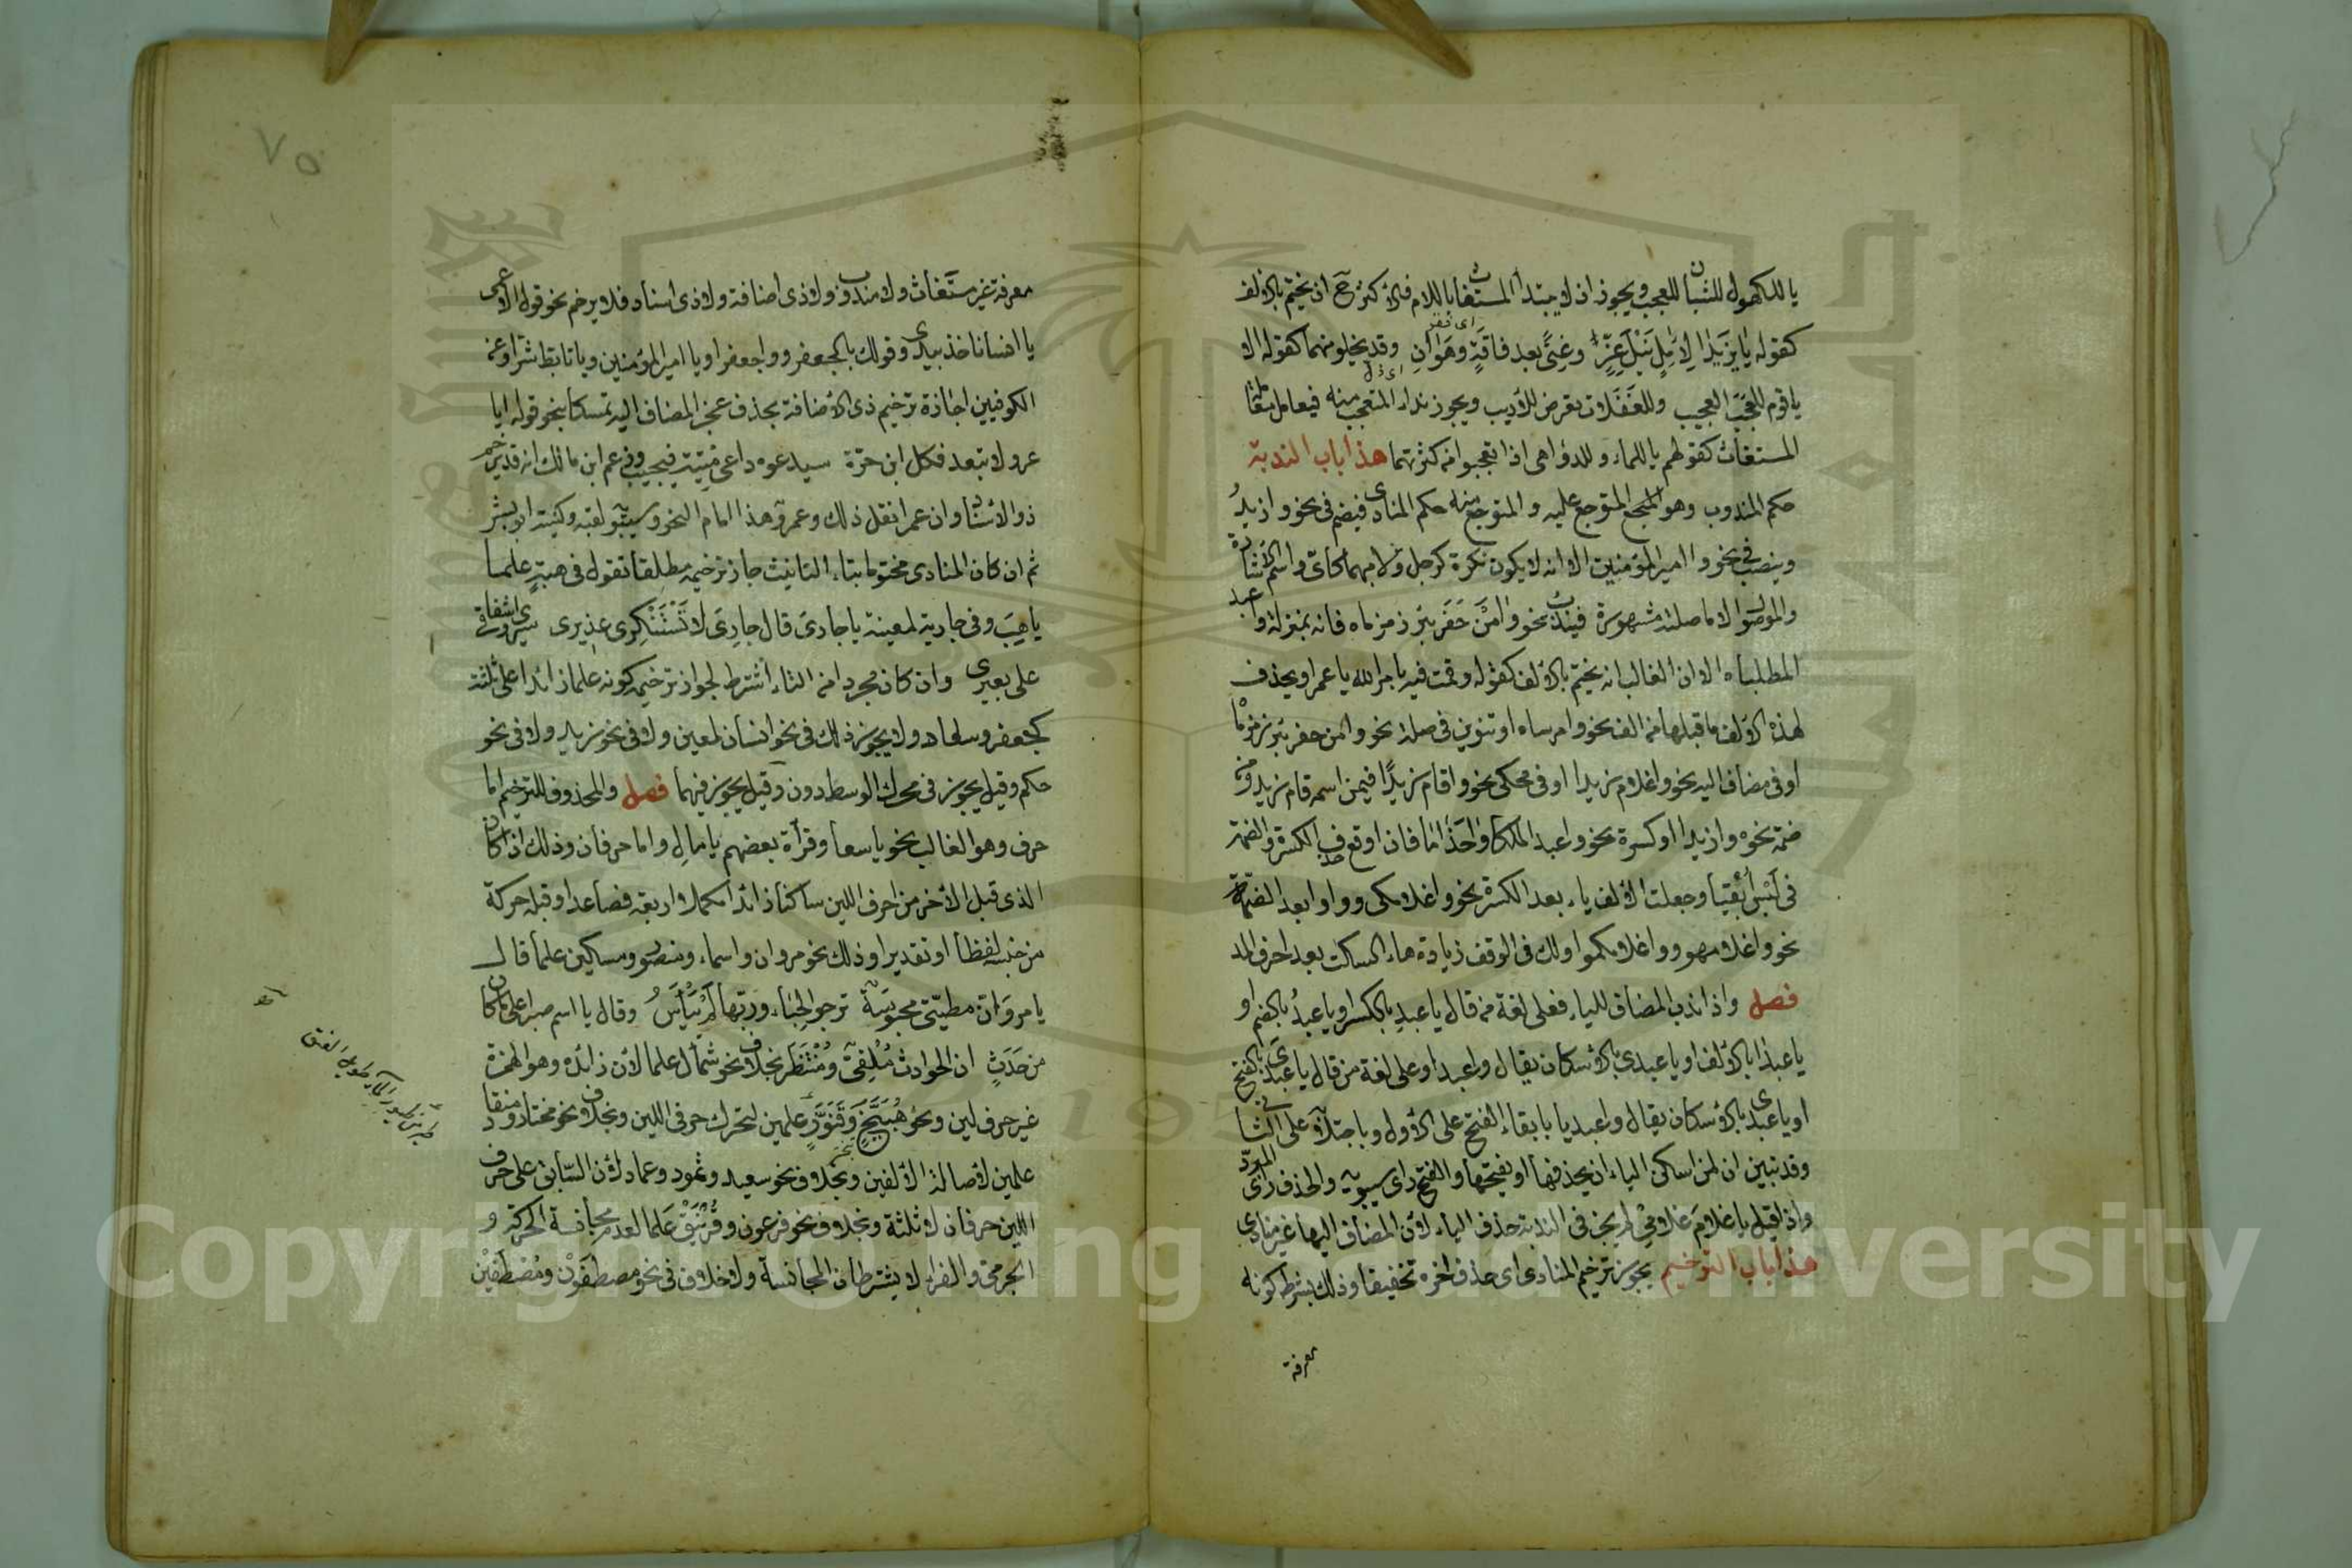 يا للكهول للشبان للعجب ويجوز ان لا يبتدأ المستغاث باللام فالاكثر ح ان يختم بالالف
كقوله يا يزيدا لآمل نيل عز وغنى بعد فاقة وهوان وقد يخلو منهما كقوله الا
اى فقر
اى ذل
يا قوم للعجب العجيب وللغفلات تعرض للاديب ويجوز نداء المتعجب منه فيعامل معاملة
المستغاث كقولهم يا للماء وللدواهى اذا تعجبوا من كثرتهما هذا باب الندبة
حكم المندوب وهو المتفجع المتوجع عليه والمتوجع منه حكم المنادى فيضم فى نحو وا زيدُ
وينصب فى نحو وا امير المؤمنين الا انه لا يكون نكرة كرجل ولا مبهما كاى واسم الاشارة
والموصول الا ما صلته مشهورة فيندب نحو وا من حفر بئر زمزماه فانه بمنزلة وا عبد
المطلباه الا ان الغالب ان يختم بالالف كقوله وقمت فيه بامر الله يا عمرا ويحذف
لهذه الالف ما قبلها من الف نحو وا موساه او تنوين فى صلة نحو وا من حفر بئر زمزماه
او فى مضاف اليه نحو وا غلام زيدا او فى محكى نحو وا قام زيدا فيمن اسمه قام زيد ومن
ضمة نحو وا زيدا او كسرة نحو وا عبد الملكا وا حذاما فان اوقع حذف الكسرة والضمة
فى لبس أبقيا وجعلت الالف ياء بعد الكسرة نحو وا غلامكى وواوا بعد الضمة
نحو وا غلامهو ووا غلامكموا ولك فى الوقف زيادة هاء السكت بعد احرف المد
فصل واذا ندب المضاف للياء فعلى لغة من قال يا عبدِ بالكسر او يا عبدُ بالضم او
يا عبدا بالالف او يا عبدى بالاسكان يقال وا عبدا وعلى لغة من قال يا عبدى بالفتح
او يا عبدى بالاسكان يقال وا عبديا بابقاء الفتح على الاول وباجتلابه على الثانى
وقد تبين ان لمن اسكن الياء ان يحذفها او يفتحها والفتح راى سيبويه والحذف راى المبرد
واذا قيل يا غلام غلامى لم يجز فى الندبة حذف الياء لان المضاف اليها غير منادى
هذا باب الترخيم يجوز ترخيم المنادى اى حذف اخره تخفيفا وذلك بشرط كونه
معرفة
٧٥
معرفة غير مستغاث ولا مندوب ولا ذى اضافة ولا ذى اسناد فلا يرخم نحو قول الاعمى
يا انسانا خذ بيدى وقولك يا لجعفر ووا جعفرا ويا امير المؤمنين ويا تابط شرا وعن
الكوفيين اجازة ترخيم ذى الاضافة بحذف عجز المضاف اليه تمسكا بنحو قوله ايا
عرو لا تبعد فكل ابن حرة سيدعوه داعى ميتة فيجيب وزعم ابن مالك انه قد يرخم
ذو الاسناد وان عمرا نقل ذلك وعمرو هذا امام النحو وسيبويه لقبه وكنيته ابو بشر
ثم ان كان المنادى مختوما بتاء التانيث جاز ترخيمه مطلقا تقول فى هبة علما
يا هبَ وفى جارية لمعينة يا جارى قال جارى لا تستنكرى عذيرى سيرى واشفاقى
على بعيرى وان كان مجردا من التاء اشترط لجواز ترخيمه كونه علما زائدا على ثلثة
كجعفر وسعاد ولا يجوز ذلك فى نحو انسان لمعين ولا فى نحو زيد ولا فى نحو
حكم وقيل يجوز فى محرك الوسط دون وقيل يجوز فيهما فصل والمحذوف للترخيم اما
حرف وهو الغالب نحو يا سعا وقرأة بعضهم يا مالِ واما حرفان وذلك اذا كان
الذى قبل الاخر من احرف اللين ساكنا زائدا مكملا اربعة فصاعدا وقبله حركة
من جنسه لفظا او تقديرا وذلك نحو مروان واسماء ومنصور ومسكين علما قال
يا مرو ان مطيتى محبوسة ترجو الحباء وربها لم ييأسُ وقال يا اسم صبرا على ما كان
من حدث ان الحوادث ملقى ومنتظر بخلاف نحو شمأل علما لان زائده وهو الهمزة
غير حرف لين ونحو هبيخ وقنور علمين لتحرك حرفى اللين وبخلاف نحو مختار ومنقاد
علمين لاصالة الالفين وبخلاف نحو سعيد وثمود وعماد لان السابق على حرف
اللين حرفان لا ثلثة وبخلاف نحو فرعون وغرنيق علما لعدم مجانسة الحركة و
الجرمى والفراء لا يشترطان المجانسة ولا خلاف فى نحو مصطفون ومصطفين
Copyright © King Saud University